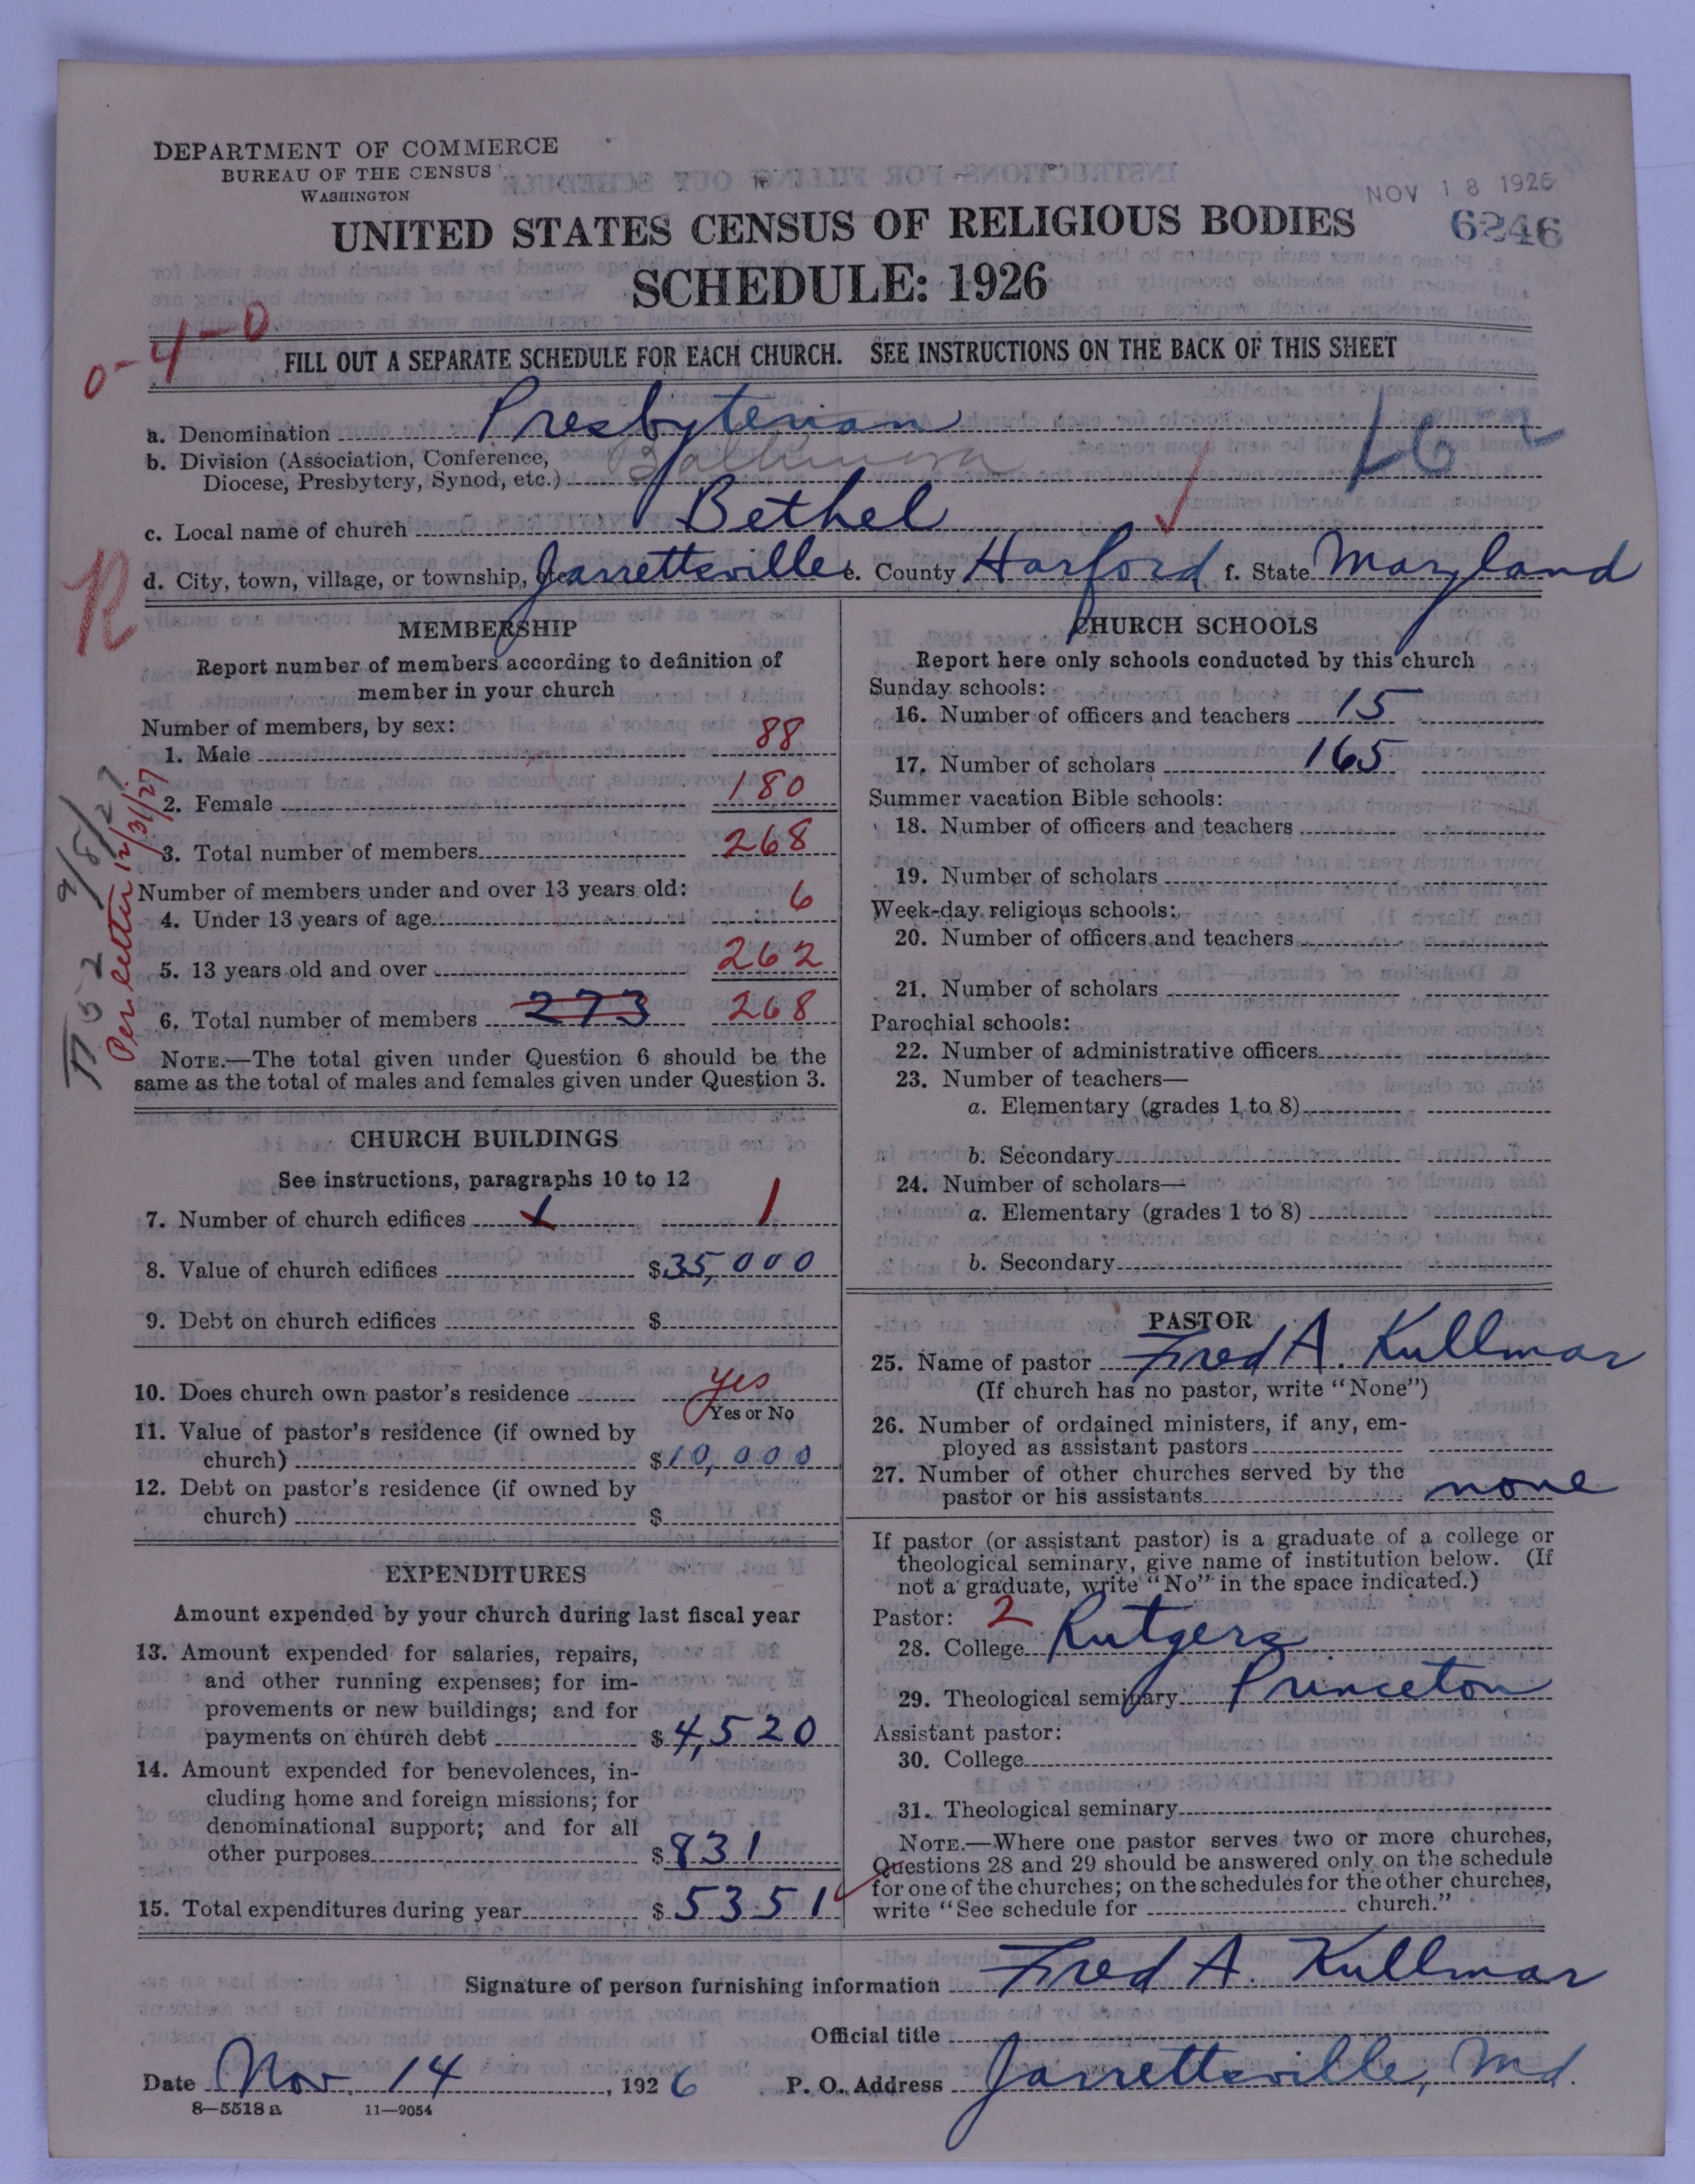 DEPARTMENT OF COMMERCE
BUREAU OF THE CENSUS
WASHINGTON
NOV 18 1926
6246
UNITED STATES CENSUS OF RELIGIOUS BODIES
SCHEDULE: 1926
0-4-0
FILL OUT A SEPARATE SCHEDULE FOR EACH CHURCH. SEE INSTRUCTIONS ON THE BACK OF THIS SHEET
a. Denomination Presbyterian
b. Division (Association, Conference, Baltimore
Diocese, Presbytery, Synod, etc.)
c. Local name of church Bethel
R
d. City, town, village, or township, etc. Jarrettsville e. County Harford f. State Maryland
MEMBERSHIP
Report number of members according to definition of
member in your church
Number of members, by sex:
1. Male 88
2. Female 180
3. Total number of members 268
Number of members under and over 13 years old:
4. Under 13 years of age 6
5. 13 years old and over 262
6. Total number of members 273 268
NOTE.—The total given under Question 6 should be the
same as the total of males and females given under Question 3.
Per letter 12/31/27
CHURCH BUILDINGS
See instructions, paragraphs 10 to 12
7. Number of church edifices 1 1
8. Value of church edifices $35,000
9. Debt on church edifices $
10. Does church own pastor's residence yes
Yes or No
11. Value of pastor's residence (if owned by
church) $10,000
12. Debt on pastor's residence (if owned by
church) $
EXPENDITURES
Amount expended by your church during last fiscal year
13. Amount expended for salaries, repairs,
and other running expenses; for im-
provements or new buildings; and for
payments on church debt $4,520
14. Amount expended for benevolences, in-
cluding home and foreign missions; for
denominational support; and for all
other purposes $831
15. Total expenditures during year $5351
CHURCH SCHOOLS
Report here only schools conducted by this church
Sunday schools:
16. Number of officers and teachers 15
17. Number of scholars 165
Summer vacation Bible schools:
18. Number of officers and teachers
19. Number of scholars
Week-day religious schools:
20. Number of officers and teachers
21. Number of scholars
Parochial schools:
22. Number of administrative officers
23. Number of teachers—
a. Elementary (grades 1 to 8)
b. Secondary
24. Number of scholars—
a. Elementary (grades 1 to 8)
b. Secondary
PASTOR
25. Name of pastor Fred A. Kullmar
(If church has no pastor, write "None")
26. Number of ordained ministers, if any, em-
ployed as assistant pastors
27. Number of other churches served by the
pastor or his assistants none
If pastor (or assistant pastor) is a graduate of a college or
theological seminary, give name of institution below. (If
not a graduate, write "No" in the space indicated.)
Pastor: 2
28. College Rutgers
29. Theological seminary Princeton
Assistant pastor:
30. College
31. Theological seminary
NOTE.—Where one pastor serves two or more churches,
Questions 28 and 29 should be answered only on the schedule
for one of the churches; on the schedules for the other churches,
write "See schedule for church."
Signature of person furnishing information Fred A. Kullmar
Official title
Date Nov. 14, 1926 P. O. Address Jarrettsville, Md.
8—5518 a 11—9054